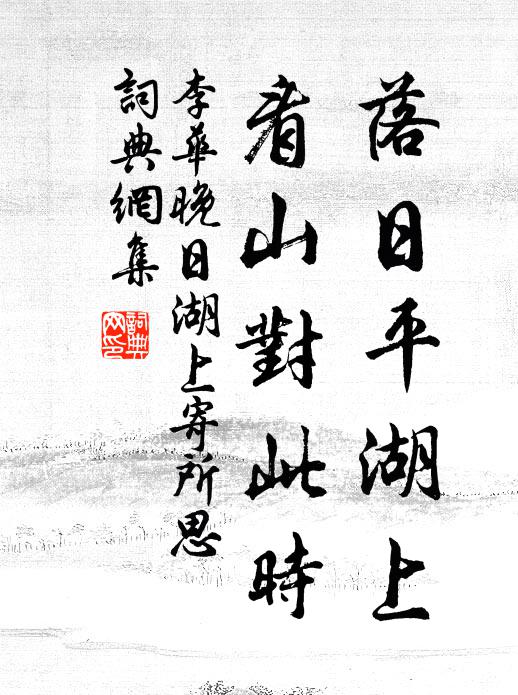 落日平湖上
看山對此時
李華晚日湖上寄所思
詞典網集
詞典網印